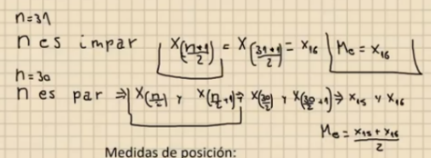 n=31
n es impar X(n+1/2) = X(31+1/2) = X16 Me = X16
n=30
n es par ⇒ X(n/2) y X(n/2+1) ⇒ X(30/2) y X(30/2+1) ⇒ X15 y X16
Me = X15+X16/2
Medidas de posición: